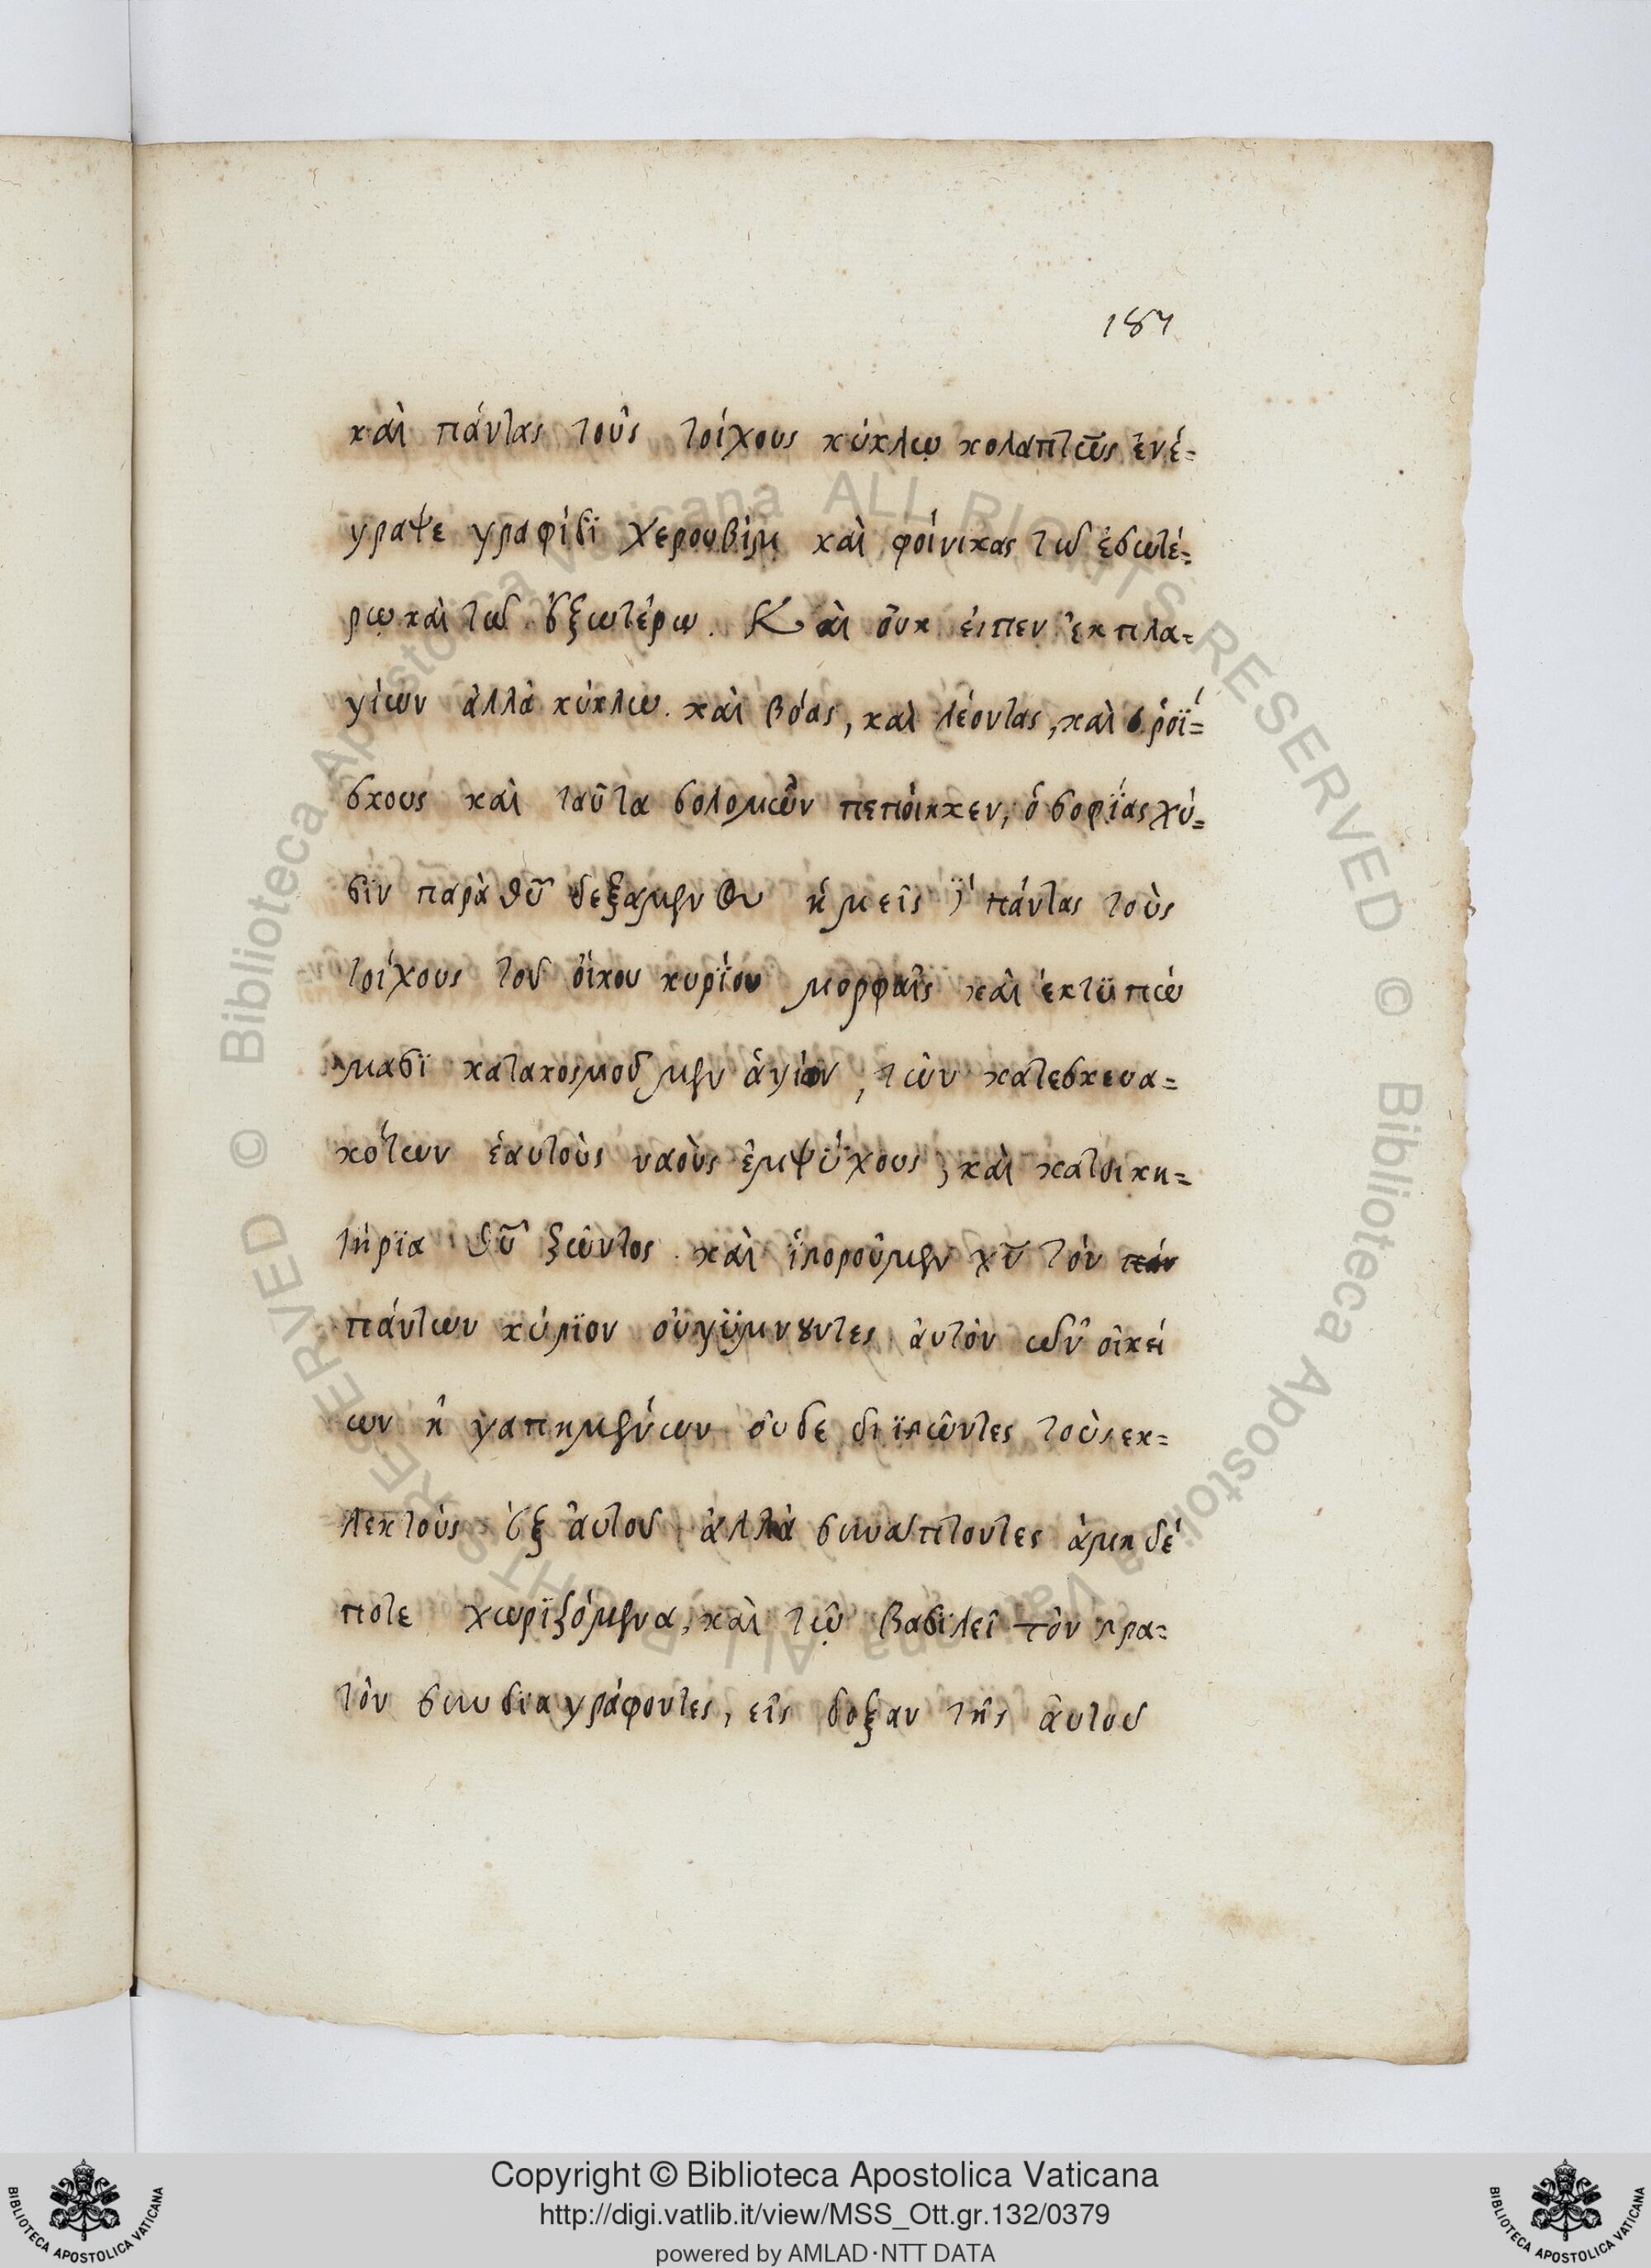 187
καὶ πάντας τοὺς τοίχους κύκλῳ κολαπτῶς ἐνέ=
γραψε γραφίδϊ χερουβὶμ καὶ φοίνικας τῶ ἐσωτέ=
ρῳ καὶ τῶ ἐξωτέρῳ. Καὶ οὐκ εἰπεν ἐκ πλα=
γίων ἀλλὰ κύκλω. καὶ βόας, καὶ λέοντας, καὶ ῥοΐ=
σκους καὶ ταῦτα σολομῶν πεποίηκεν, ὁ σοφίας χύ=
σϊν παρὰ θῦ δεξαμεν ἡμεῖς πάντας τοὺς
τοίχους τοῦ οἴκου κυρΐου μορφαῖς καὶ ἐκτϋπώ
μασϊ κατακοσμοῦμεν ἁγίων, τῶν κατεσκευα=
κότων ἑαυτοὺς ναοὺς ἐμψύχους, καὶ κατοικη=
τήρϊα θῦ ζῶντος. καὶ ἱστοροῦμεν χῦ τὸν παν
πάντων κύρϊον οὐ γϋμνοῦντες ἀυτὸν τῶν οἰκεί
ων ἠγαπημένων οὐδε διϊστῶντες τοὺς ἐκ=
λεκτοὺς ἐξ ἀυτοῦ ἀλλὰ συναπτοντες ἁ μηδέ
ποτε χωρϊζόμενα, καὶ τῷ βασϊλεῖ τὸν στρα=
τὸν συνδϊαγράφοντες, εἰς δοξαν τῆς ἀυτοῦ
Copyright © Biblioteca Apostolica Vaticana
http://digi.vatlib.it/view/MSS_Ott.gr.132/0379
powered by AMLAD·NTT DATA
BIBLIOTECA APOSTOLICA VATICANA
BIBLIOTECA APOSTOLICA VATICANA
© Biblioteca Apostolica Vaticana ALL RIGHTS RESERVED © Biblioteca Apostolica Vaticana ALL RIGHTS RESERVED